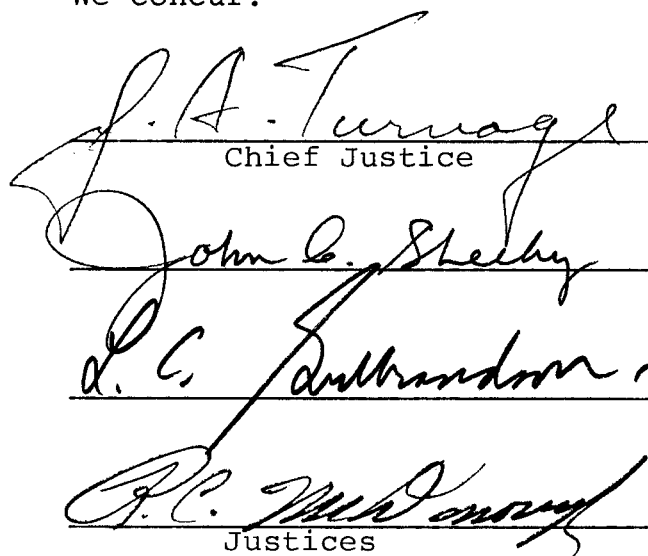 We concur:
J. A. Turnage
Chief Justice
John C. Sheehy
L. C. Gulbrandson
R. C. McDonough
Justices